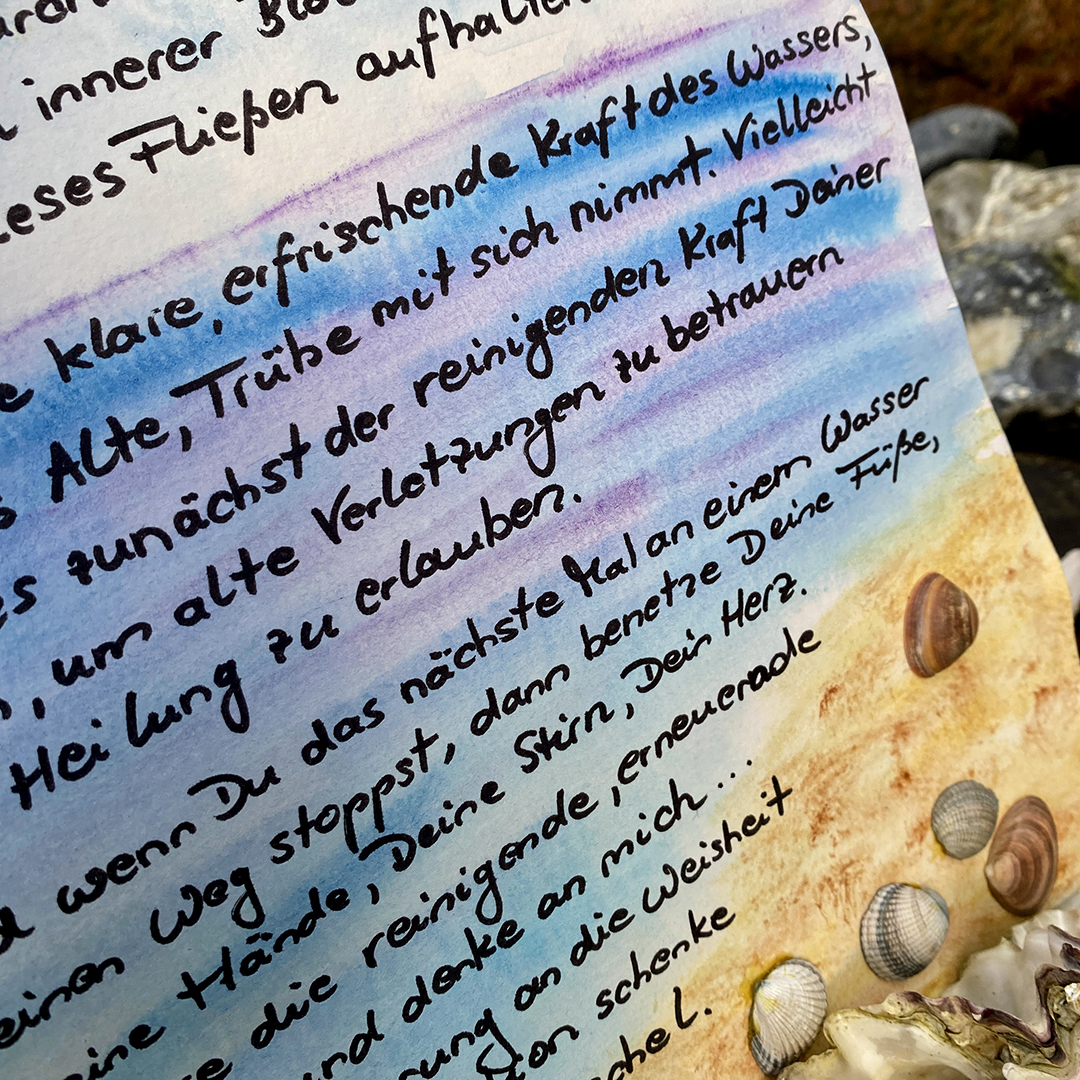 innerer
Fließen
klare, erfrischende Kraft des Wassers,
Alte, Trübe mit sich nimmt. Vielleicht
zunächst der reinigenden Kraft Deiner
, um alte Verletzungen zu betrauern
Heilung zu erlauben.
wenn Du das nächste Mal an einem Wasser
Weg stoppst, dann benetze Deine Füße,
Hände, Deine Stirn, Dein Herz.
die reinigende, erneuerade
denke an mich...
an die Weisheit
schenke